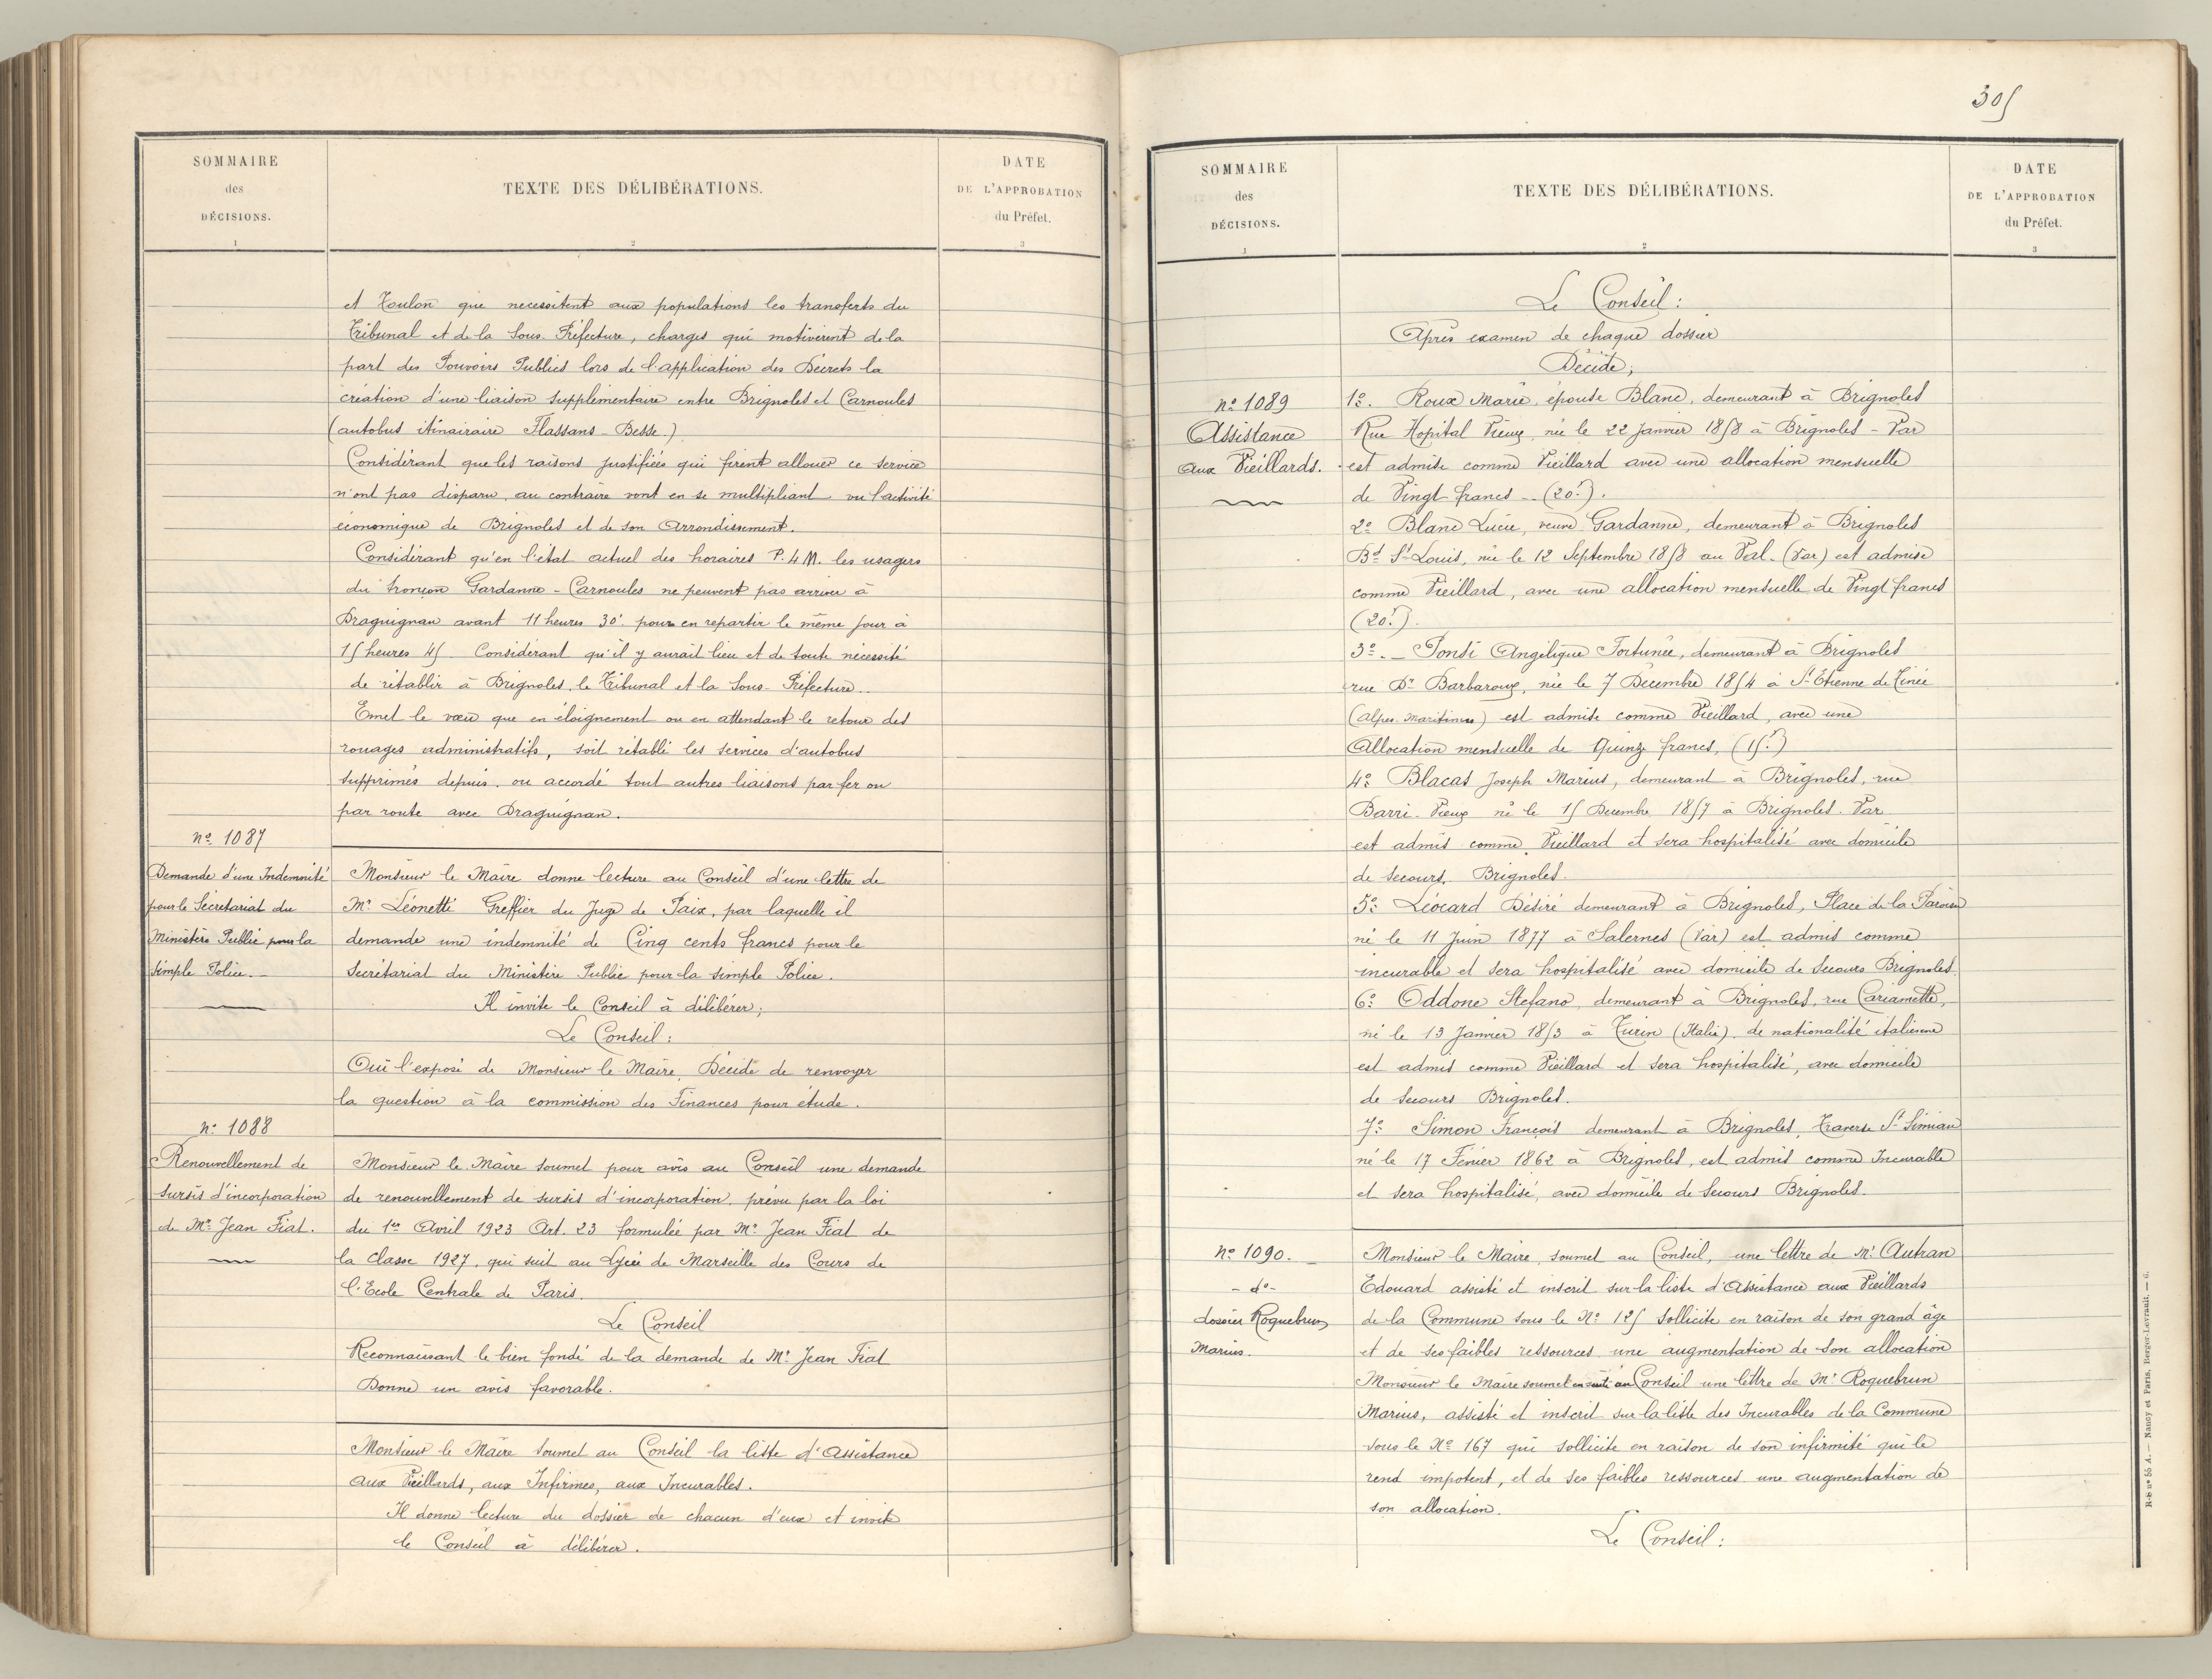 SOMMAIRE
des
DÉCISIONS.
1
TEXTE DES DÉLIBÉRATIONS.
2
DATE
DE L'APPROBATION
du Préfet.
3
et Toulon que necessitent aux populations les transferts du
Tribunal et de la Sous Préfecture, charges qui motivèrent de la
part des Pouvoirs Publics lors de l'application des Décrets la
création d'une liaison supplémentaire entre Brignoles et Carnoules
(autobus itinairaire Flassans - Besse.)
Considérant que les raisons justifiées qui firent allouer ce service
n'ont pas disparu, au contraire vont en se multipliant vu l'activité
économique de Brignoles et de son Arrondissement.
Considérant qu'en l'état actuel des horaires P. L. M. les usagers
du tronçon Gardanne - Carnoules ne peuvent pas arriver à
Draguignan avant 11 heures 30' pour en repartir le même jour à
15 heures 45 Considérant qu'il y aurait lieu et de toute nécessité
de rétablir à Brignoles, le Tribunal et la Sous-Préfecture..
Emet le vœu que en éloignement ou en attendant le retour des
rouages administratifs, soit rétabli les services d'autobus
supprimés depuis, ou accordé tout autres liaisons par fer ou
par route avec Draguignan.
n° 1087
Demande d'une Indemnité
pour le Secrétariat du
Ministère Public pour la
Simple Police.
Monsieur le Maire donne lecture au Conseil d'une lettre de
Mr Léonetti Greffier du Juge de Paix, par laquelle il
demande une indemnité de Cinq cents francs pour le
Secrétariat du Ministère Public pour la simple Police.
Il invite le Conseil à délibérer;
Le Conseil:
Ouï l'exposé de Monsieur le Maire, Décide de renvoyer
la question à la commission des Finances pour étude.
n° 1088
Renouvellement de
sursis d'incorporation
de Mr Jean Fiat.
Monsieur le Maire soumet pour avis au Conseil une demande
de renouvellement de sursis d'incorporation, prévu par la loi
du 1er Avril 1923 Art. 23 formulée par Mr Jean Fiat de
la Classe 1927, qui suit au Lycée de Marseille des Cours de
l'Ecole Centrale de Paris.
Le Conseil
Reconnaissant le bien fondé de la demande de Mr Jean Fiat
Donne un avis favorable.
Monsieur le Maire soumet au Conseil la liste d'Assistance
aux Vieillards, aux Infirmes, aux Incurables.
Il donne lecture du dossier de chacun d'eux et invite
le Conseil à délibérer.
305
SOMMAIRE
des
DÉCISIONS.
1
TEXTE DES DÉLIBÉRATIONS.
2
DATE
DE L'APPROBATION
du Préfet.
3
Le Conseil:
Après examen de chaque dossier
Décide;
n° 1089
Assistance
aux Vieillards.
1°. Roux Marie, épouse Blanc, demeurant à Brignoles
Rue Hopital Vieux, née le 22 Janvier 1858 à Brignoles - Var
est admise comme Vieillard avec une allocation mensuelle
de Vingt francs -- (20f).
2° Blanc Lucie, veuve Gardanne, demeurant à Brignoles
Bd St-Louis, née le 12 Septembre 1858 au Val. (Var) est admise
comme Vieillard, avec une allocation mensuelle de Vingt francs
(20f).
3°.- Ponsi Angélique Fortunée, demeurant à Brignoles
rue Dr Barbaroux, née le 7 Décembre 1854 à St Etienne de Tinée
(Alpes-Maritimes) est admise comme Vieillard, avec une
Allocation mensuelle de Quinze francs, (15f)
4° Blacas Joseph Marius, demeurant à Brignoles, rue
Barri-Vieux né le 15 Décembre 1857 à Brignoles. Var
est admis comme Vieillard et sera hospitalisé avec domicile
de secours, Brignoles.
5° Léocard Désiré demeurant à Brignoles, Place de la Paroisse
né le 11 Juin 1877 à Salernes (Var) est admis comme
incurable et sera hospitalisé avec domicile de Secours Brignoles.
6° Oddone Stefano, demeurant à Brignoles, rue Cariamette,
né le 13 Janvier 1853 à Turin (Italie) de nationalité italienne
est admis comme Vieillard et sera hospitalisé, avec domicile
de Secours Brignoles.
7° Simon François demeurant à Brignoles, Traverse St Simian
né le 17 Février 1862 à Brignoles, est admis comme Incurable
et sera hospitalisé, avec domicile de Secours Brignoles.
n° 1090.
- d° -
dossier Roquebrun
Marius.
Monsieur le Maire, soumet au Conseil, une lettre de Mr Autran
Edouard assisté et inscrit sur la liste d'Assistance aux Vieillards
de la Commune sous le N° 125 sollicite en raison de son grand âge
et de ses faibles ressources une augmentation de son allocation
Monsieur le Maire soumet ensuite au Conseil une lettre de Mr Roquebrun
Marius, assisté et inscrit sur la liste des Incurables de la Commune
sous le N° 167 qui sollicite en raison de son infirmité qui le
rend impotent, et de ses faibles ressources une augmentation de
son allocation.
Le Conseil:
R-S n° 55 A. — Nancy et Paris, Berger-Levrault. — 6.